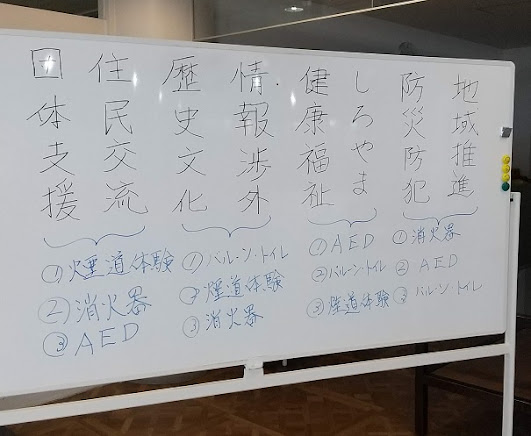 地域推進
防災防犯
しろやま
健康福祉
情報渉外
歴史文化
住民交流
団体支援
①消火器
② AED
③ バルーン・トイレ
①AED
②バルーン・トイレ
③煙道体験
①バルーン・トイレ
②煙道体験
③消火器
①煙道体験
②消火器
③AED